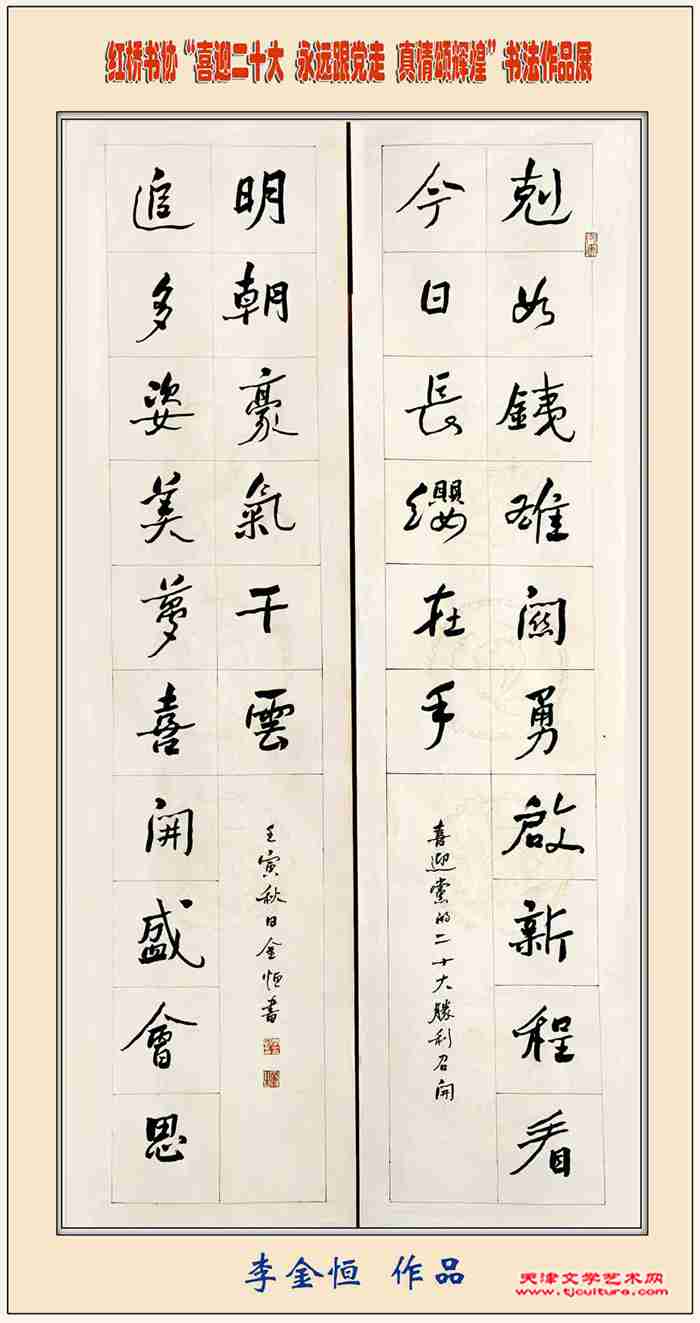 红桥书协“喜迎二十大 永远跟党走 真情颂辉煌”书法作品展
剋如銕雄關勇啟新程看
今日長纓在手
喜迎黨的二十大勝利召開
追多姿美夢喜開盛會思
明朝豪氣干雲
壬寅秋日金恒書
李金恒 作品
天津文学艺术网
www.tjculture.com